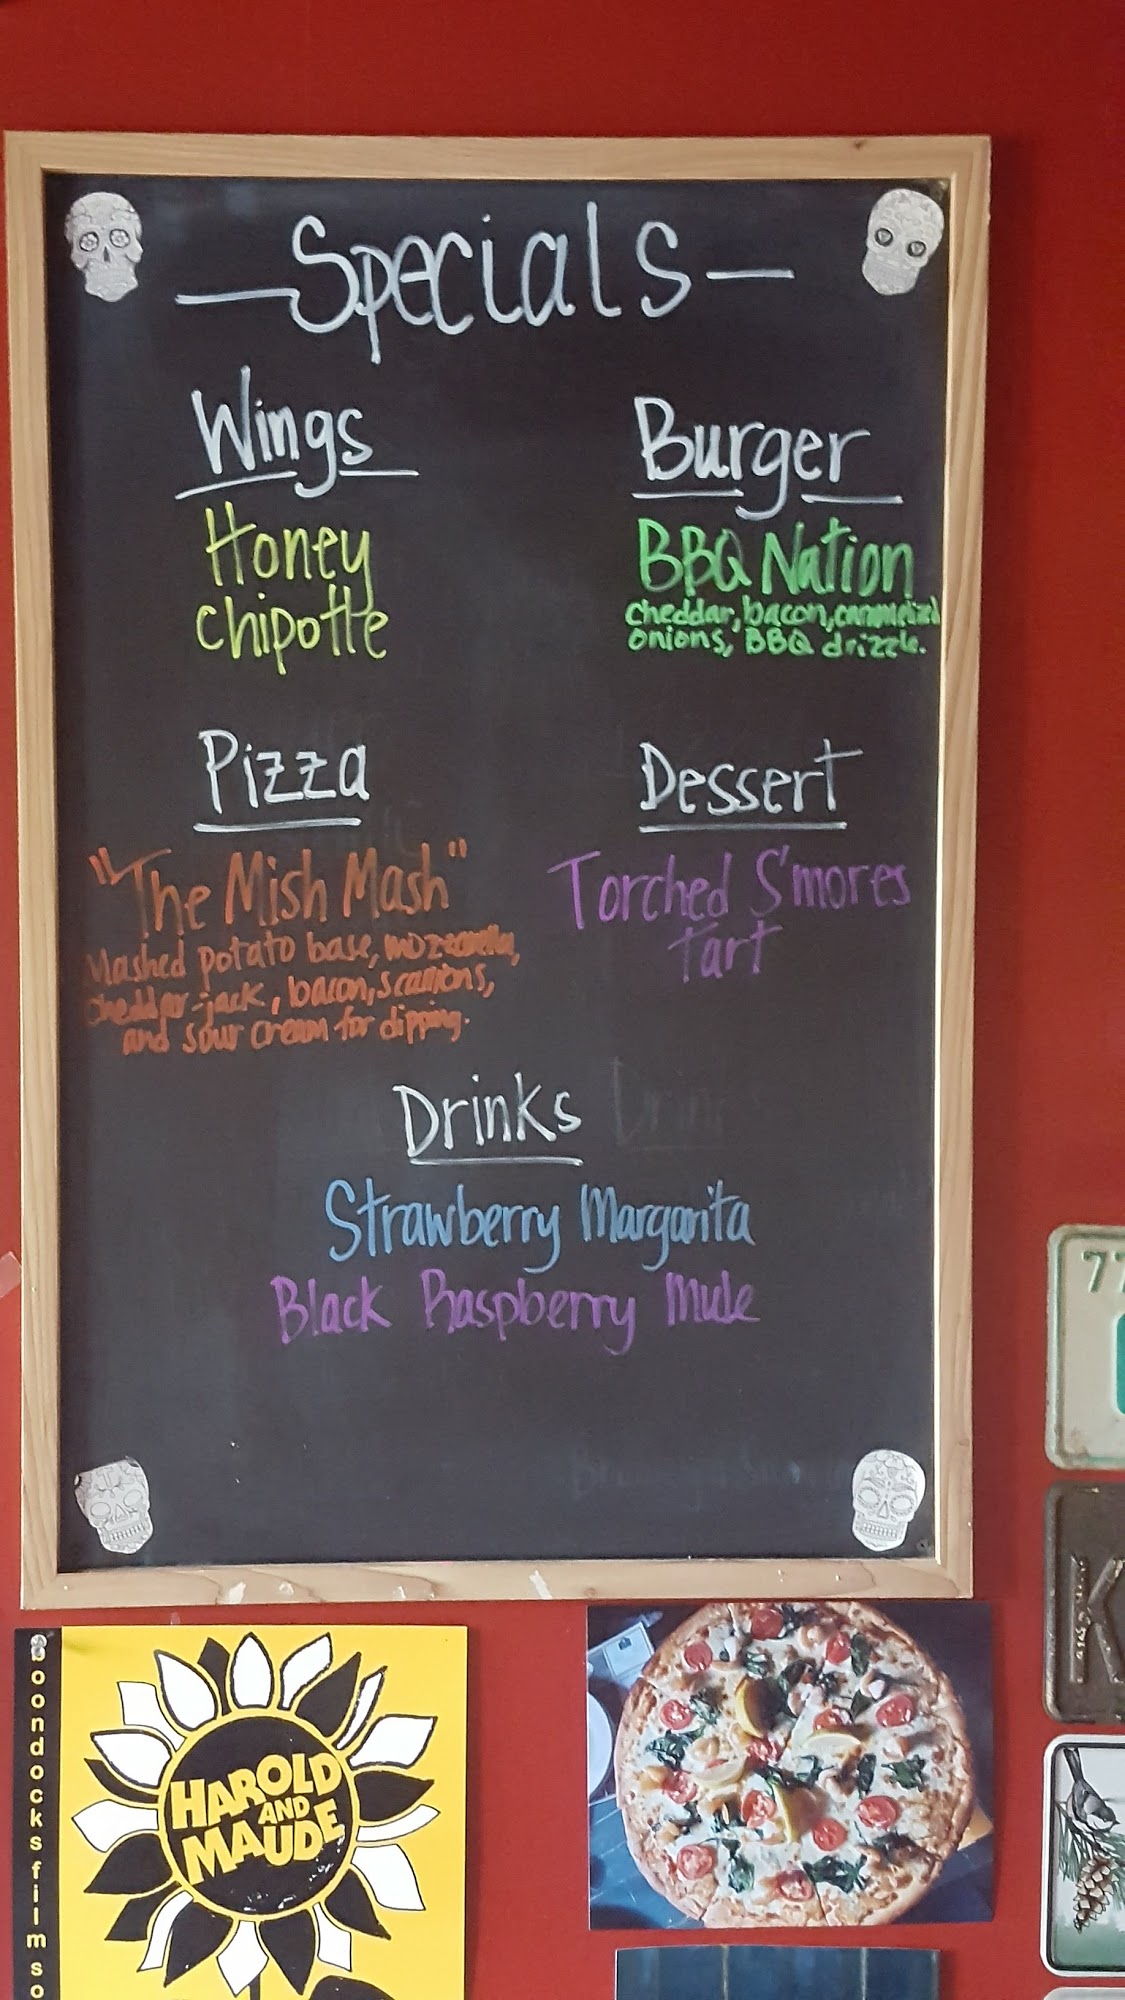 Specials
Wings
Honey
chipotle
Burger
BBQ Nation
cheddar, bacon, caramelized
onions, BBQ drizzle.
Pizza
"The Mish Mash"
Mashed potato base, mozzarella,
cheddar-jack, bacon, scallions,
and sour cream for dipping.
Dessert
Torched S'mores
Tart
Drinks
Strawberry Margarita
Black Raspberry Mule
Boondocks film so
HAROLD
AND
MAUDE
77
K